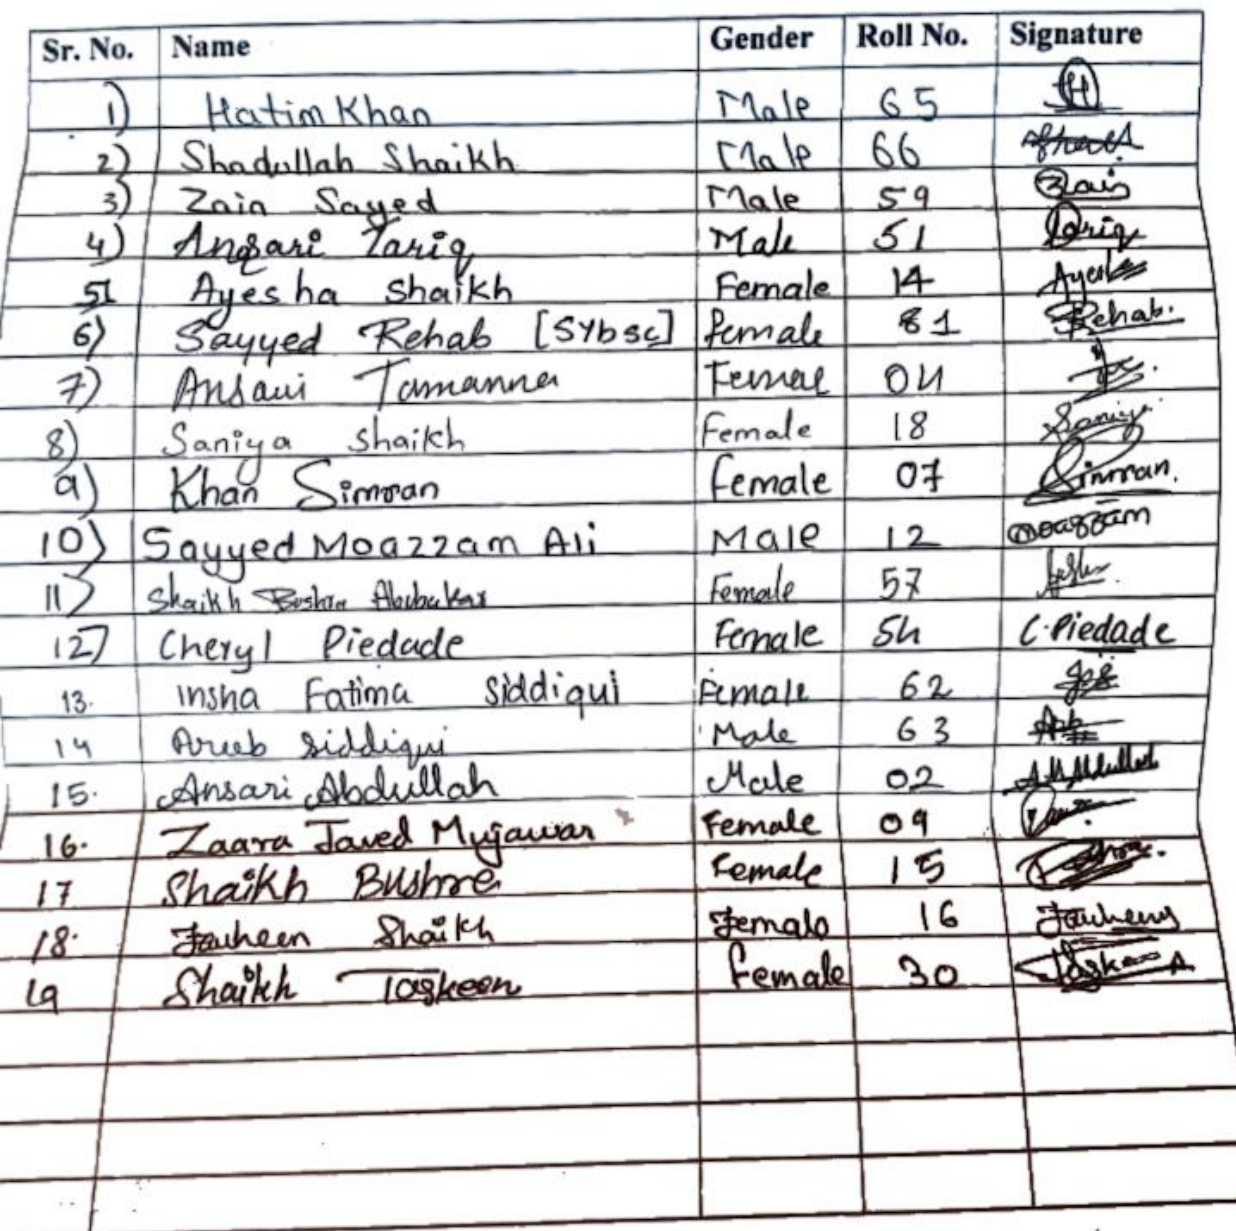 Sr. No. Name Gender Roll No. Signature
1) Hatim Khan Male 65 H
2) Shadullah Shaikh Male 66
3) Zain Sayed Male 59 Zain
4) Ansari Tariq Male 51 Tariq
5) Ayesha Shaikh Female 14 Ayesha
6) Sayyed Rehab [SYbsc] Female 81 Rehab.
7) Ansari Tamanna Female 04
8) Saniya Shaikh Female 18 Saniya
9) Khan Simran Female 07 Simran.
10) Sayyed Moazzam Ali Male 12 Moazzam
11) Shaikh Bushra Abubakar Female 57
12) Cheryl Piedade Female 54 C.Piedade
13. Insha Fatima Siddiqui Female 62
14 Areeb Siddiqui Male 63
15. Ansari Abdullah Male 02 Abdullah
16. Zaara Javed Mujawar Female 09
17 Shaikh Bushra Female 15
18. Farheen Shaikh Female 16 Farheen
19 Shaikh Taskeen Female 30 Taskeen